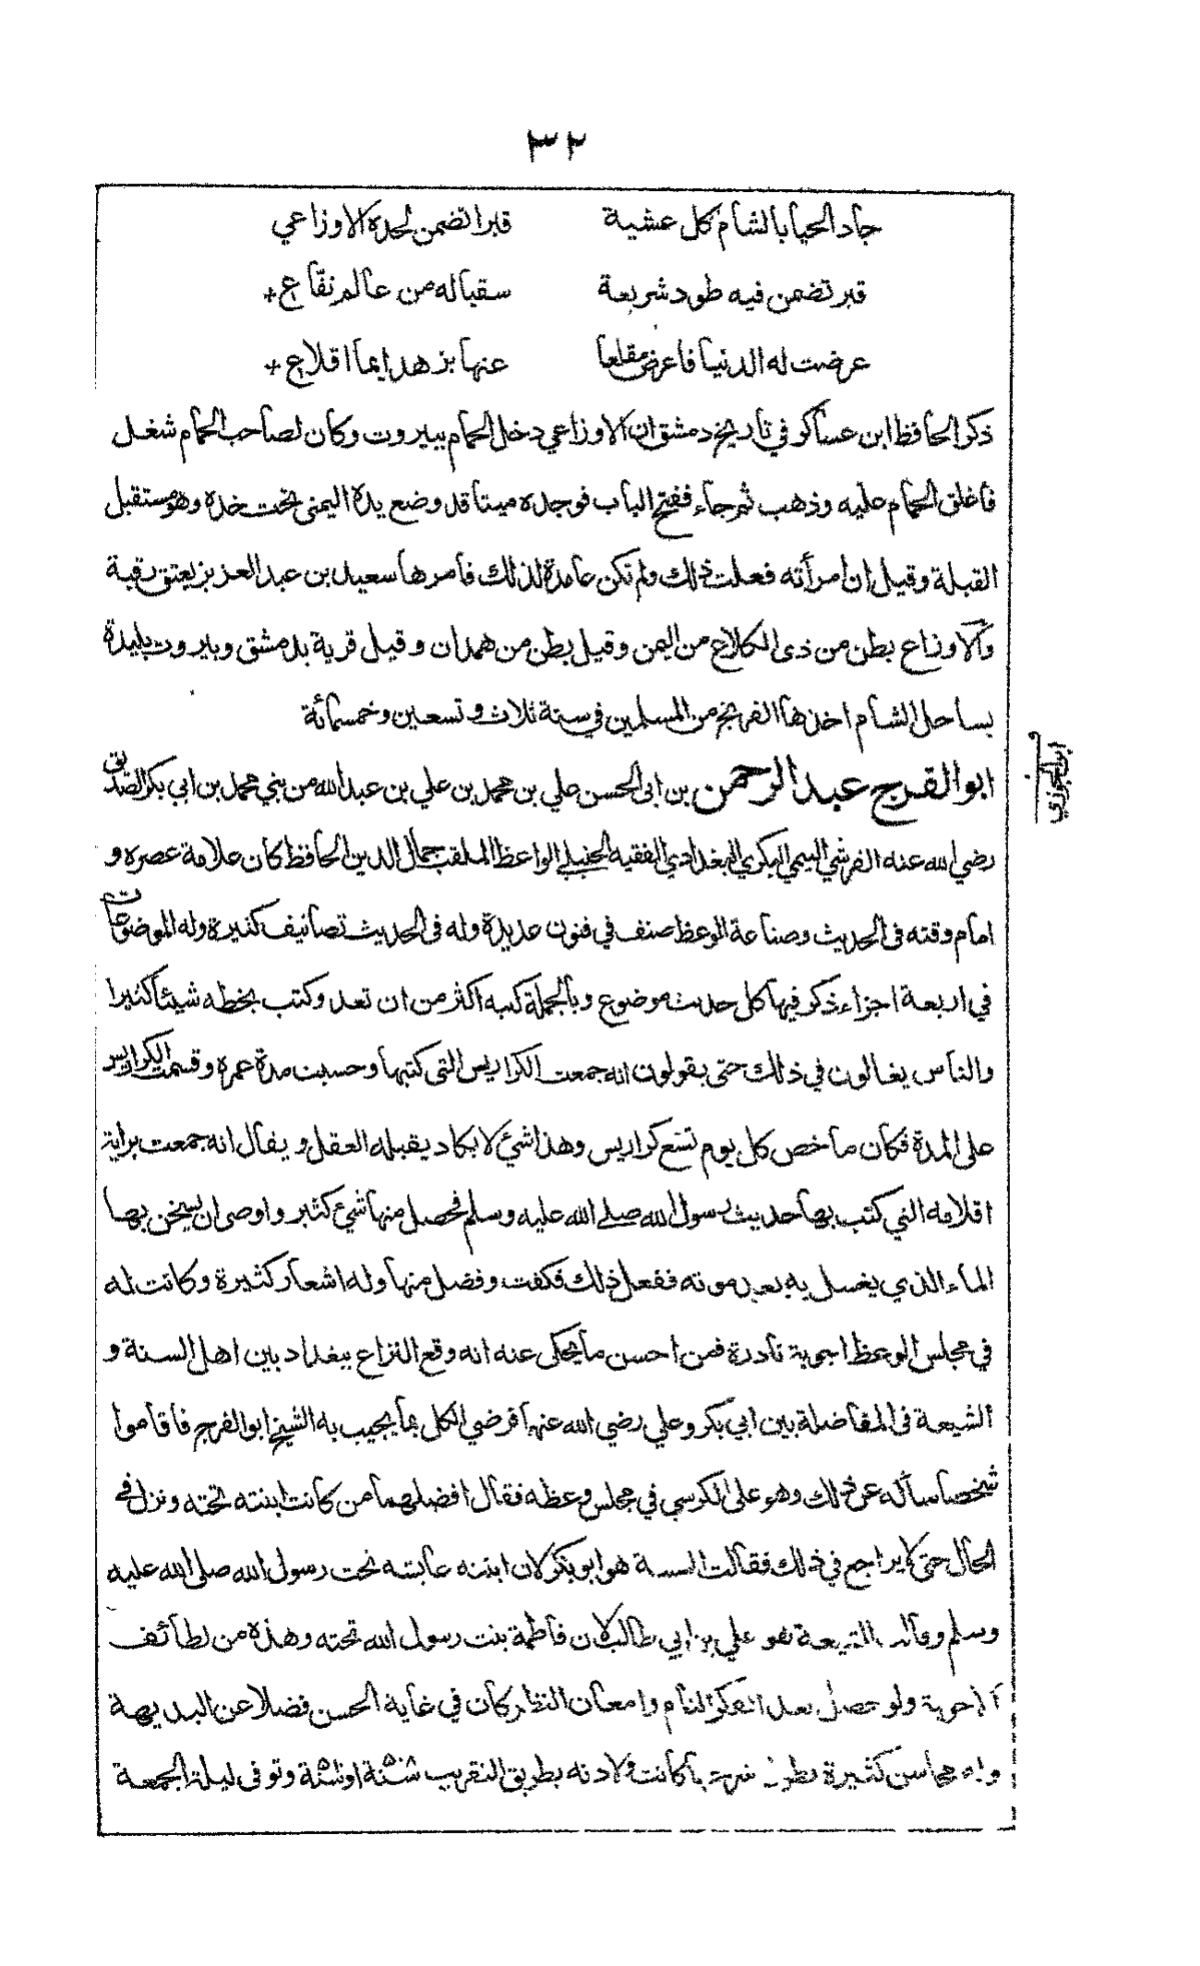 ٣٢
جاد الحيا بالشام كل عشية قبرا تضمن لحده الاوزاعي
قبر تضمن فيه طود شريعة سقيا له من عالم نفاع +
عرضت له الدنيا فاعرض مقلعا عنها بزهد ايما اقلاع +
ذكر الحافظ ابن عساكر في تاريخ دمشق ان الاوزاعي دخل الحمام ببيروت وكان لصاحب الحمام شغل
فاغلق الحمام عليه وذهب ثم جاء ففتح الباب فوجده ميتا قد وضع يده اليمنى تحت خده وهو مستقبل
القبلة وقيل ان امرأته فعلت ذلك ولم تكن عامدة لذلك فامرها سعيد بن عبد العزيز بعتق رقبة
والاوزاع بطن من ذى الكلاع من اليمن وقيل بطن من همدان وقيل قرية بدمشق وبيروت بليدة
بساحل الشام اخذها الفرنج من المسلمين في سنة ثلاث وتسعين وخمسمائة
ابن الجوزي
ابو الفرج عبد الرحمن بن ابى الحسن علي بن محمد بن علي بن عبد الله من بني محمد بن ابي بكر الصديق
رضي الله عنه القرشي التيمي البكري البغدادي الفقيه الحنبلي الواعظ الملقب جمال الدين الحافظ كان علامة عصره و
امام وقته فى الحديث وصناعة الوعظ صنف في فنون عديدة وله فى الحديث تصانيف كثيرة وله الموضوعات
في اربعة اجزاء ذكر فيها كل حديث موضوع وبالجملة كتبه اكثر من ان تعد وكتب بخطه شيئا كثيرا
والناس يغالون في ذلك حتى يقولون انه جمعت الكراريس التى كتبها وحسبت مدة عمره وقسمت الكراريس
على المدة فكان ما خص كل يوم تسع كراريس وهذا شيء لا يكاد يقبله العقل ويقال انه جمعت براية
اقلامه التي كتب بها حديث رسول الله صلى الله عليه وسلم فحصل منها شيء كثير واوصى ان يسخن بها
الماء الذي يغسل به بعد موته ففعل ذلك فكفت وفضل منها وله اشعار كثيرة وكانت له
في مجلس الوعظ اجوبة نادرة فمن احسن ما يحكى عنه انه وقع النزاع ببغداد بين اهل السنة و
الشيعة فى المفاضلة بين ابي بكر وعلي رضي الله عنهما فرضي الكل بما يجيب به الشيخ ابو الفرج فاقاموا
شخصا سأله عن ذلك وهو على الكرسي في مجلس وعظه فقال افضلهما من كانت ابنته تحته ونزل في
الحال حتى لا يراجع في ذلك فقالت السنة هو ابو بكر لان ابنته عايشة تحت رسول الله صلى الله عليه
وسلم وقالت الشيعة هو علي بن ابي طالب لان فاطمة بنت رسول الله تحته وهذه من لطائف
الاجوبة ولو حصل بعد الفكر التام وامعان النظر كان في غاية الحسن فضلا عن البديهة
وله محاسن كثيرة يطول شرحها كانت ولادته بطريق التقريب او وتوفى ليلة الجمعة